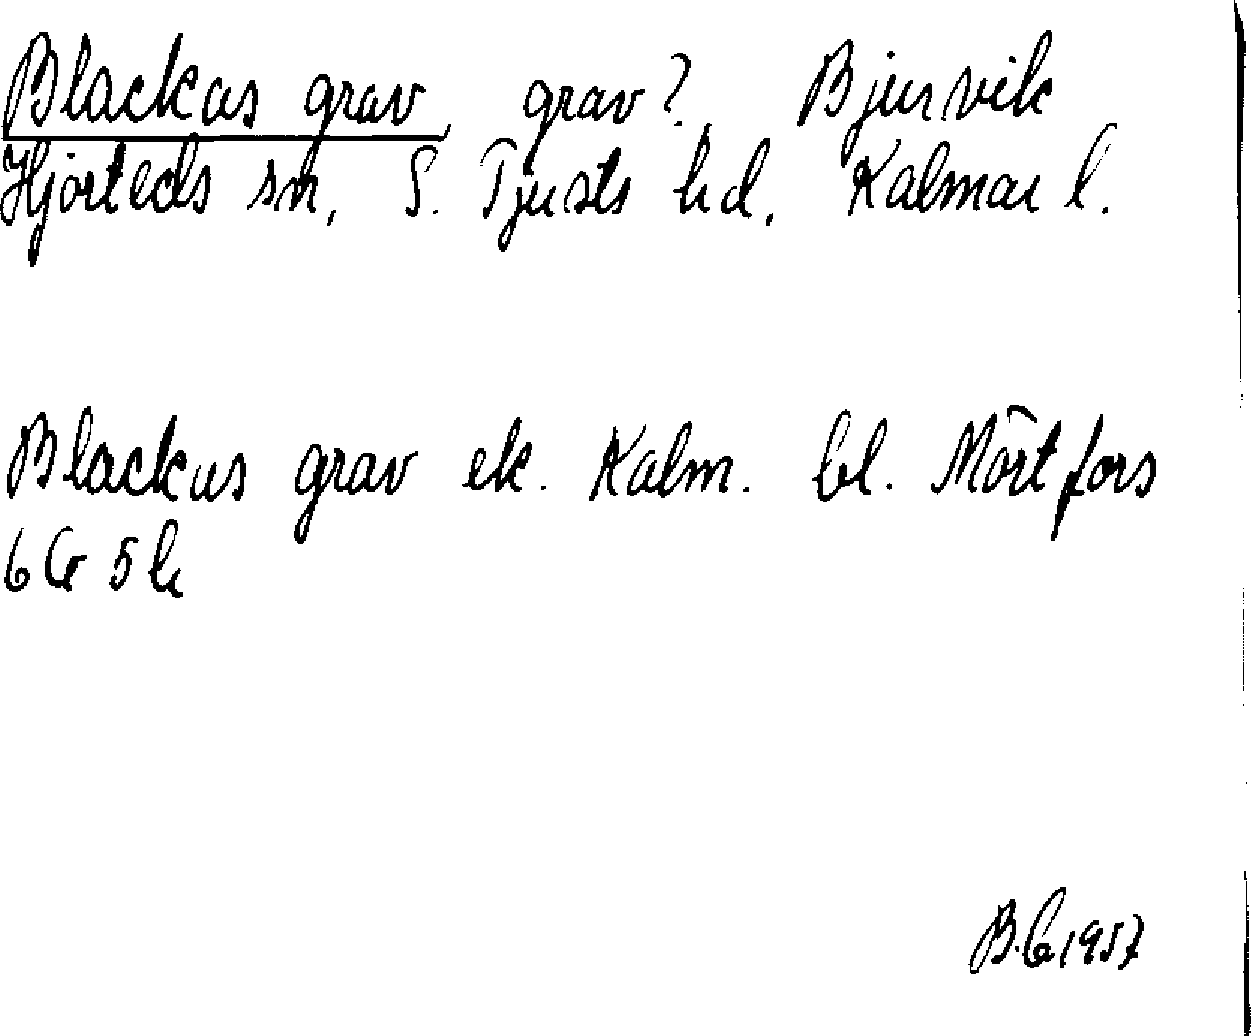 Blackas grav, grav? Bjurvik
Hjorteds sn, S. Tjusts hd, Kalmar l.
Blackus grav ek. Kalm. bl. Mörtfors
6G 5h
1957